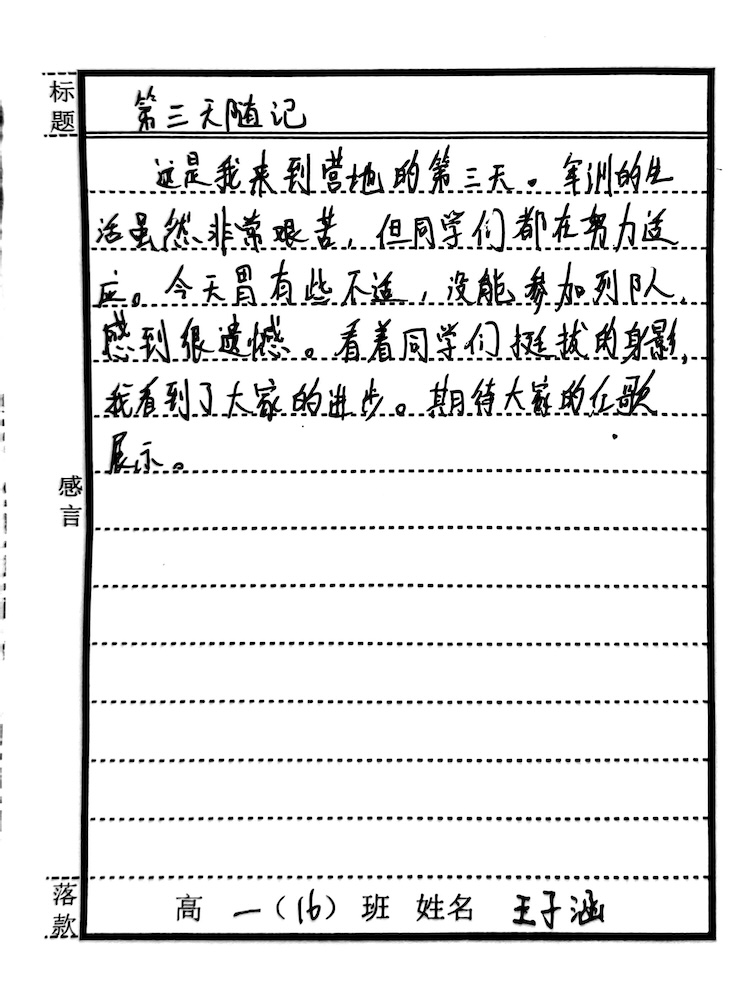 标题
第三天随记
这是我来到营地的第三天。军训的生
活虽然非常艰苦，但同学们都在努力适
应。今天胃有些不适，没能参加列队，
感到很遗憾。看着同学们挺拔的身影，
我看到了大家的进步。期待大家的红歌
展示。
感言
落款
高一（16）班 姓名 王子涵